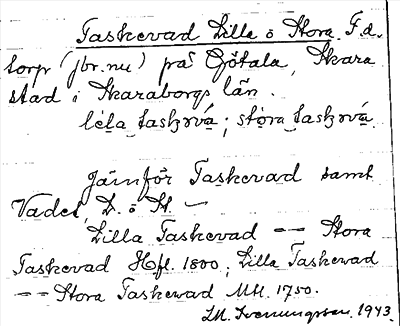 Taskevad Lilla o Stora. F.d.
torp (jbr. nu) på Götala, Skara
stad i Skaraborgs län.
lèla taskǝvá ; stòra taskǝvá.
Jämför Taskevad samt
Vadet, L. o St. —
Lilla Taskevad –– Stora
Taskevad Hfl. 1800; Lilla Taskewad
–– Stora Taskewad Ml. 1750.
1943.